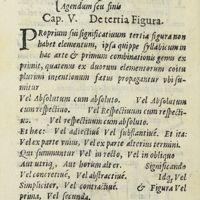 Agendum seu finis
Cap. V. De tertia Figura.
PRoprium sui significatiuum tertia figura non
habet elementum, ipsa quippe syllabicum in
hac arte & primum combinationis genus ex
primit, quatenus ex duorum elementorum coitu
plurium intentionum fœtus propagantur vbi su-
mitur
Vel Absolutum cum absoluto. Vel Absolutum
cum respectiuo. Vel Respectiuum cum respecti-
uo.
Et hoc: Vel adiectiuè Vel substantiuè. Et ita:
Vel ex parte vnius, Vel ex parte alterius termini.
Qui sumuntur Vel in recto, Vel in obliquo
Aut vtriq, Aut horum alter. Significando
Vel concretiuè, Vel abstractiuè. Idq, Vel
Simpliciter, Vel contractiuè. & Figura Vel
prima, Vel secunda.